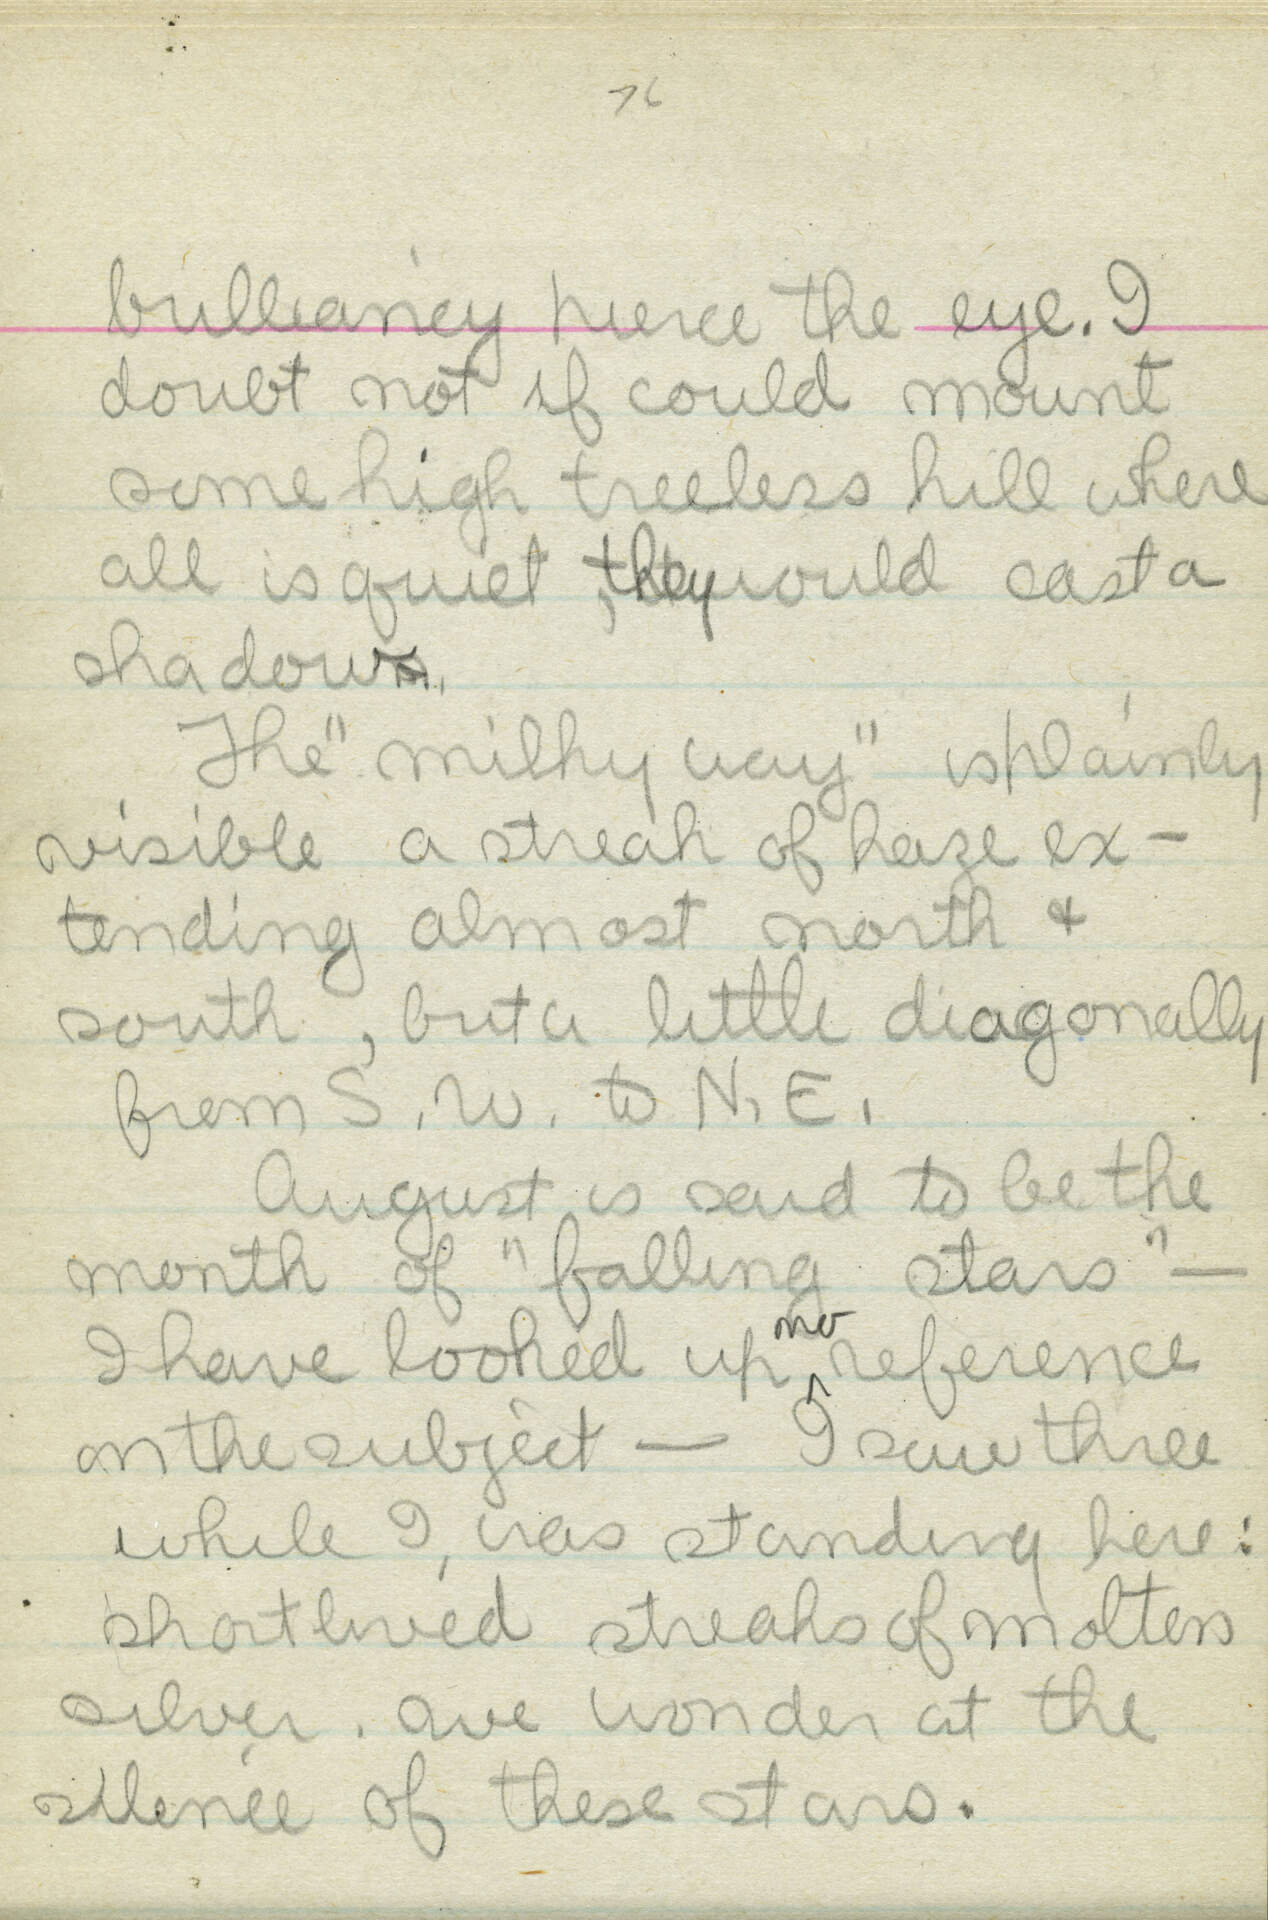 76
brilliancy pierce the eye. I
doubt not if could mount
some high treeless hill where
all is quiet, they would cast a
shadow.
The "milky way" is plainly
visible a streak of haze ex-
tending almost north &
south, but a little diagonally
from S.W. to N.E.
August is said to be the
month of "falling stars" —
I have looked up no reference
on the subject — I saw three
while I, was standing here:
short lived streaks of molten
silver. One wonder at the
silence of these stars.